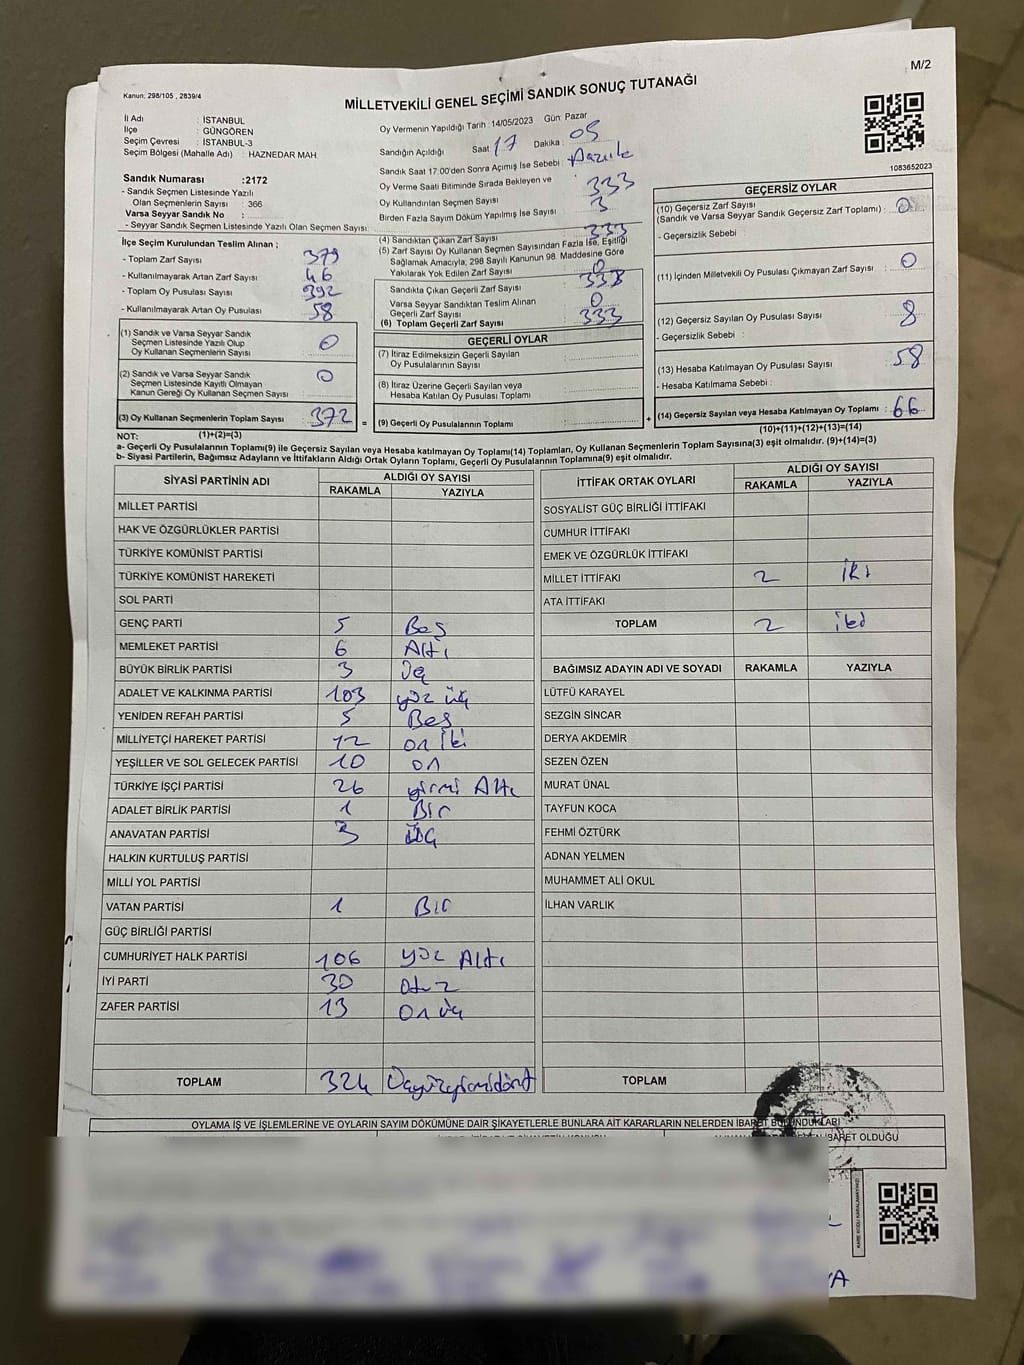 M/2
Kanun: 298/105 , 2839/4
MİLLETVEKİLİ GENEL SEÇİMİ SANDIK SONUÇ TUTANAĞI
İl Adı : İSTANBUL
İlçe : GÜNGÖREN
Seçim Çevresi : İSTANBUL-3
Seçim Bölgesi (Mahalle Adı) : HAZNEDAR MAH
Sandık Numarası :2172
- Sandık Seçmen Listesinde Yazılı
Olan Seçmenlerin Sayısı : 366
Varsa Seyyar Sandık No :
- Seyyar Sandık Seçmen Listesinde Yazılı Olan Seçmen Sayısı:
Oy Vermenin Yapıldığı Tarih : 14/05/2023 Gün: Pazar
Sandığın Açıldığı Saat 17 Dakika : 05
Sandık Saat 17:00'den Sonra Açımış İse Sebebi :
Oy Verme Saati Bitiminde Sırada Bekleyen ve
Oy Kullandırılan Seçmen Sayısı : 333
Birden Fazla Sayım Döküm Yapılmış İse Sayısı : 3
1083652023
İlçe Seçim Kurulundan Teslim Alınan ;
- Toplam Zarf Sayısı : 379
- Kullanılmayarak Artan Zarf Sayısı : 46
- Toplam Oy Pusulası Sayısı : 392
- Kullanılmayarak Artan Oy Pusulası : 58
(1) Sandık ve Varsa Seyyar Sandık
Seçmen Listesinde Yazılı Olup
Oy Kullanan Seçmenlerin Sayısı : 0
(2) Sandık ve Varsa Seyyar Sandık
Seçmen Listesinde Kayıtlı Olmayan
Kanun Gereği Oy Kullanan Seçmen Sayısı : 0
(3) Oy Kullanan Seçmenlerin Toplam Sayısı : 372
(1)+(2)=(3)
(4) Sandıktan Çıkan Zarf Sayısı : 333
(5) Zarf Sayısı Oy Kullanan Seçmen Sayısından Fazla İse, Eşitliği
Sağlamak Amacıyla; 298 Sayılı Kanunun 98. Maddesine Göre
Yakılarak Yok Edilen Zarf Sayısı : 0
Sandıkta Çıkan Geçerli Zarf Sayısı : 333
Varsa Seyyar Sandıktan Teslim Alınan
Geçerli Zarf Sayısı : 0
(6) Toplam Geçerli Zarf Sayısı : 333
GEÇERLİ OYLAR
(7) İtiraz Edilmeksizin Geçerli Sayılan
Oy Pusulalarının Sayısı :
(8) İtiraz Üzerine Geçerli Sayılan veya
Hesaba Katılan Oy Pusulası Toplamı :
= (9) Geçerli Oy Pusulalarının Toplamı :
GEÇERSİZ OYLAR
(10) Geçersiz Zarf Sayısı
(Sandık ve Varsa Seyyar Sandık Geçersiz Zarf Toplamı) : 0
- Geçersizlik Sebebi :
(11) İçinden Milletvekili Oy Pusulası Çıkmayan Zarf Sayısı : 0
(12) Geçersiz Sayılan Oy Pusulası Sayısı : 8
- Geçersizlik Sebebi :
(13) Hesaba Katılmayan Oy Pusulası Sayısı : 58
- Hesaba Katılmama Sebebi :
+ (14) Geçersiz Sayılan veya Hesaba Katılmayan Oy Toplamı : 66
(10)+(11)+(12)+(13)=(14)
NOT:
a- Geçerli Oy Pusulalarının Toplamı(9) ile Geçersiz Sayılan veya Hesaba katılmayan Oy Toplamı(14) Toplamları, Oy Kullanan Seçmenlerin Toplam Sayısına(3) eşit olmalıdır. (9)+(14)=(3)
b- Siyasi Partilerin, Bağımsız Adayların ve İttifakların Aldığı Ortak Oyların Toplamı, Geçerli Oy Pusulalarının Toplamına(9) eşit olmalıdır.
SİYASİ PARTİNİN ADI ALDIĞI OY SAYISI
RAKAMLA YAZIYLA
MİLLET PARTİSİ
HAK VE ÖZGÜRLÜKLER PARTİSİ
TÜRKİYE KOMÜNİST PARTİSİ
TÜRKİYE KOMÜNİST HAREKETİ
SOL PARTİ
GENÇ PARTİ 5 Beş
MEMLEKET PARTİSİ 6 Altı
BÜYÜK BİRLİK PARTİSİ 3 Üç
ADALET VE KALKINMA PARTİSİ 103 yüz üç
YENİDEN REFAH PARTİSİ 5 Beş
MİLLİYETÇİ HAREKET PARTİSİ 12 on iki
YEŞİLLER VE SOL GELECEK PARTİSİ 10 on
TÜRKİYE İŞÇİ PARTİSİ 26 yirmi Altı
ADALET BİRLİK PARTİSİ 1 Bir
ANAVATAN PARTİSİ 3 Üç
HALKIN KURTULUŞ PARTİSİ
MİLLİ YOL PARTİSİ
VATAN PARTİSİ 1 Bir
GÜÇ BİRLİĞİ PARTİSİ
CUMHURİYET HALK PARTİSİ 106 yüz Altı
İYİ PARTİ 30 Otuz
ZAFER PARTİSİ 13 On üç
TOPLAM 324 Üçyüzyirmidört
İTTİFAK ORTAK OYLARI ALDIĞI OY SAYISI
RAKAMLA YAZIYLA
SOSYALİST GÜÇ BİRLİĞİ İTTİFAKI
CUMHUR İTTİFAKI
EMEK VE ÖZGÜRLÜK İTTİFAKI
MİLLET İTTİFAKI 2 iki
ATA İTTİFAKI
TOPLAM 2 iki
BAĞIMSIZ ADAYIN ADI VE SOYADI RAKAMLA YAZIYLA
LÜTFÜ KARAYEL
SEZGİN SİNCAR
DERYA AKDEMİR
SEZEN ÖZEN
MURAT ÜNAL
TAYFUN KOCA
FEHMİ ÖZTÜRK
ADNAN YELMEN
MUHAMMET ALİ OKUL
İLHAN VARLIK
TOPLAM
OYLAMA İŞ VE İŞLEMLERİNE VE OYLARIN SAYIM DÖKÜMÜNE DAİR ŞİKAYETLERLE BUNLARA AİT KARARLARIN NELERDEN İBARET BULUNDUKLARI
İBARET OLDUĞU